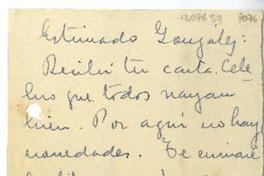 1207659 9076
Estimado González:
Recibí tu carta. Cele
bro que todos vayan
bien. Por aquí no hay
novedades. Te enviaré